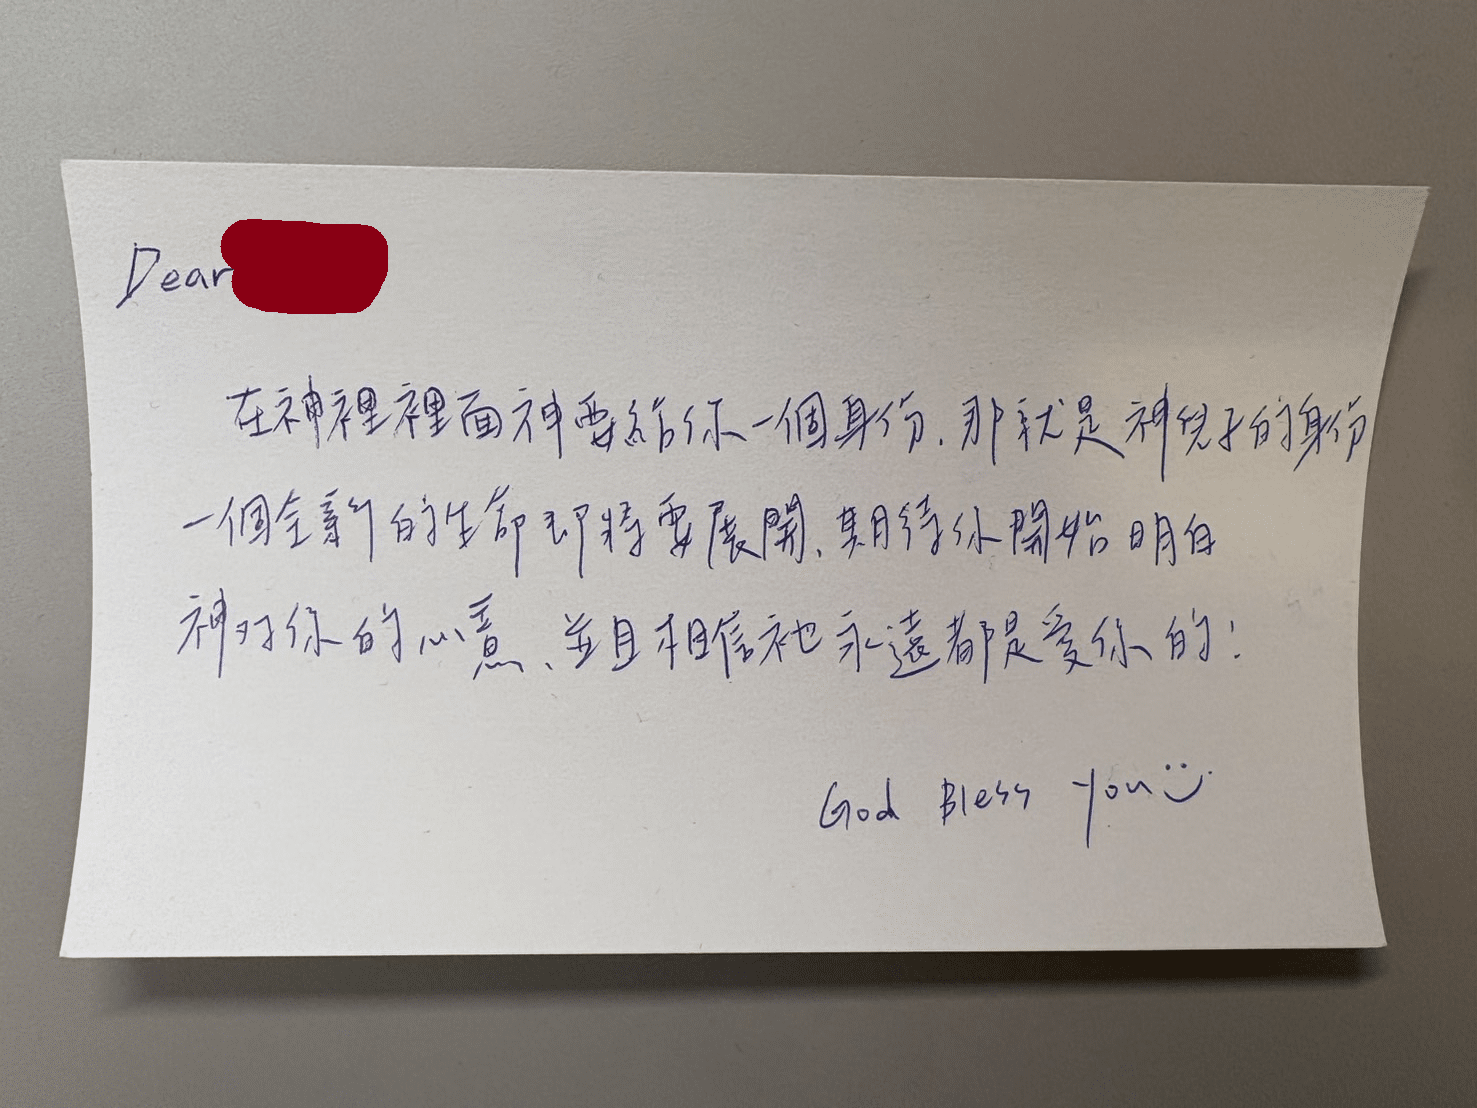 Dear
在神裡裡面神要給你一個身份,那就是神兒子的身份
一個全新的生命即將要展開、期待你開始明白
神对你的心意、並且相信祂永遠都是愛你的!
God Bless You